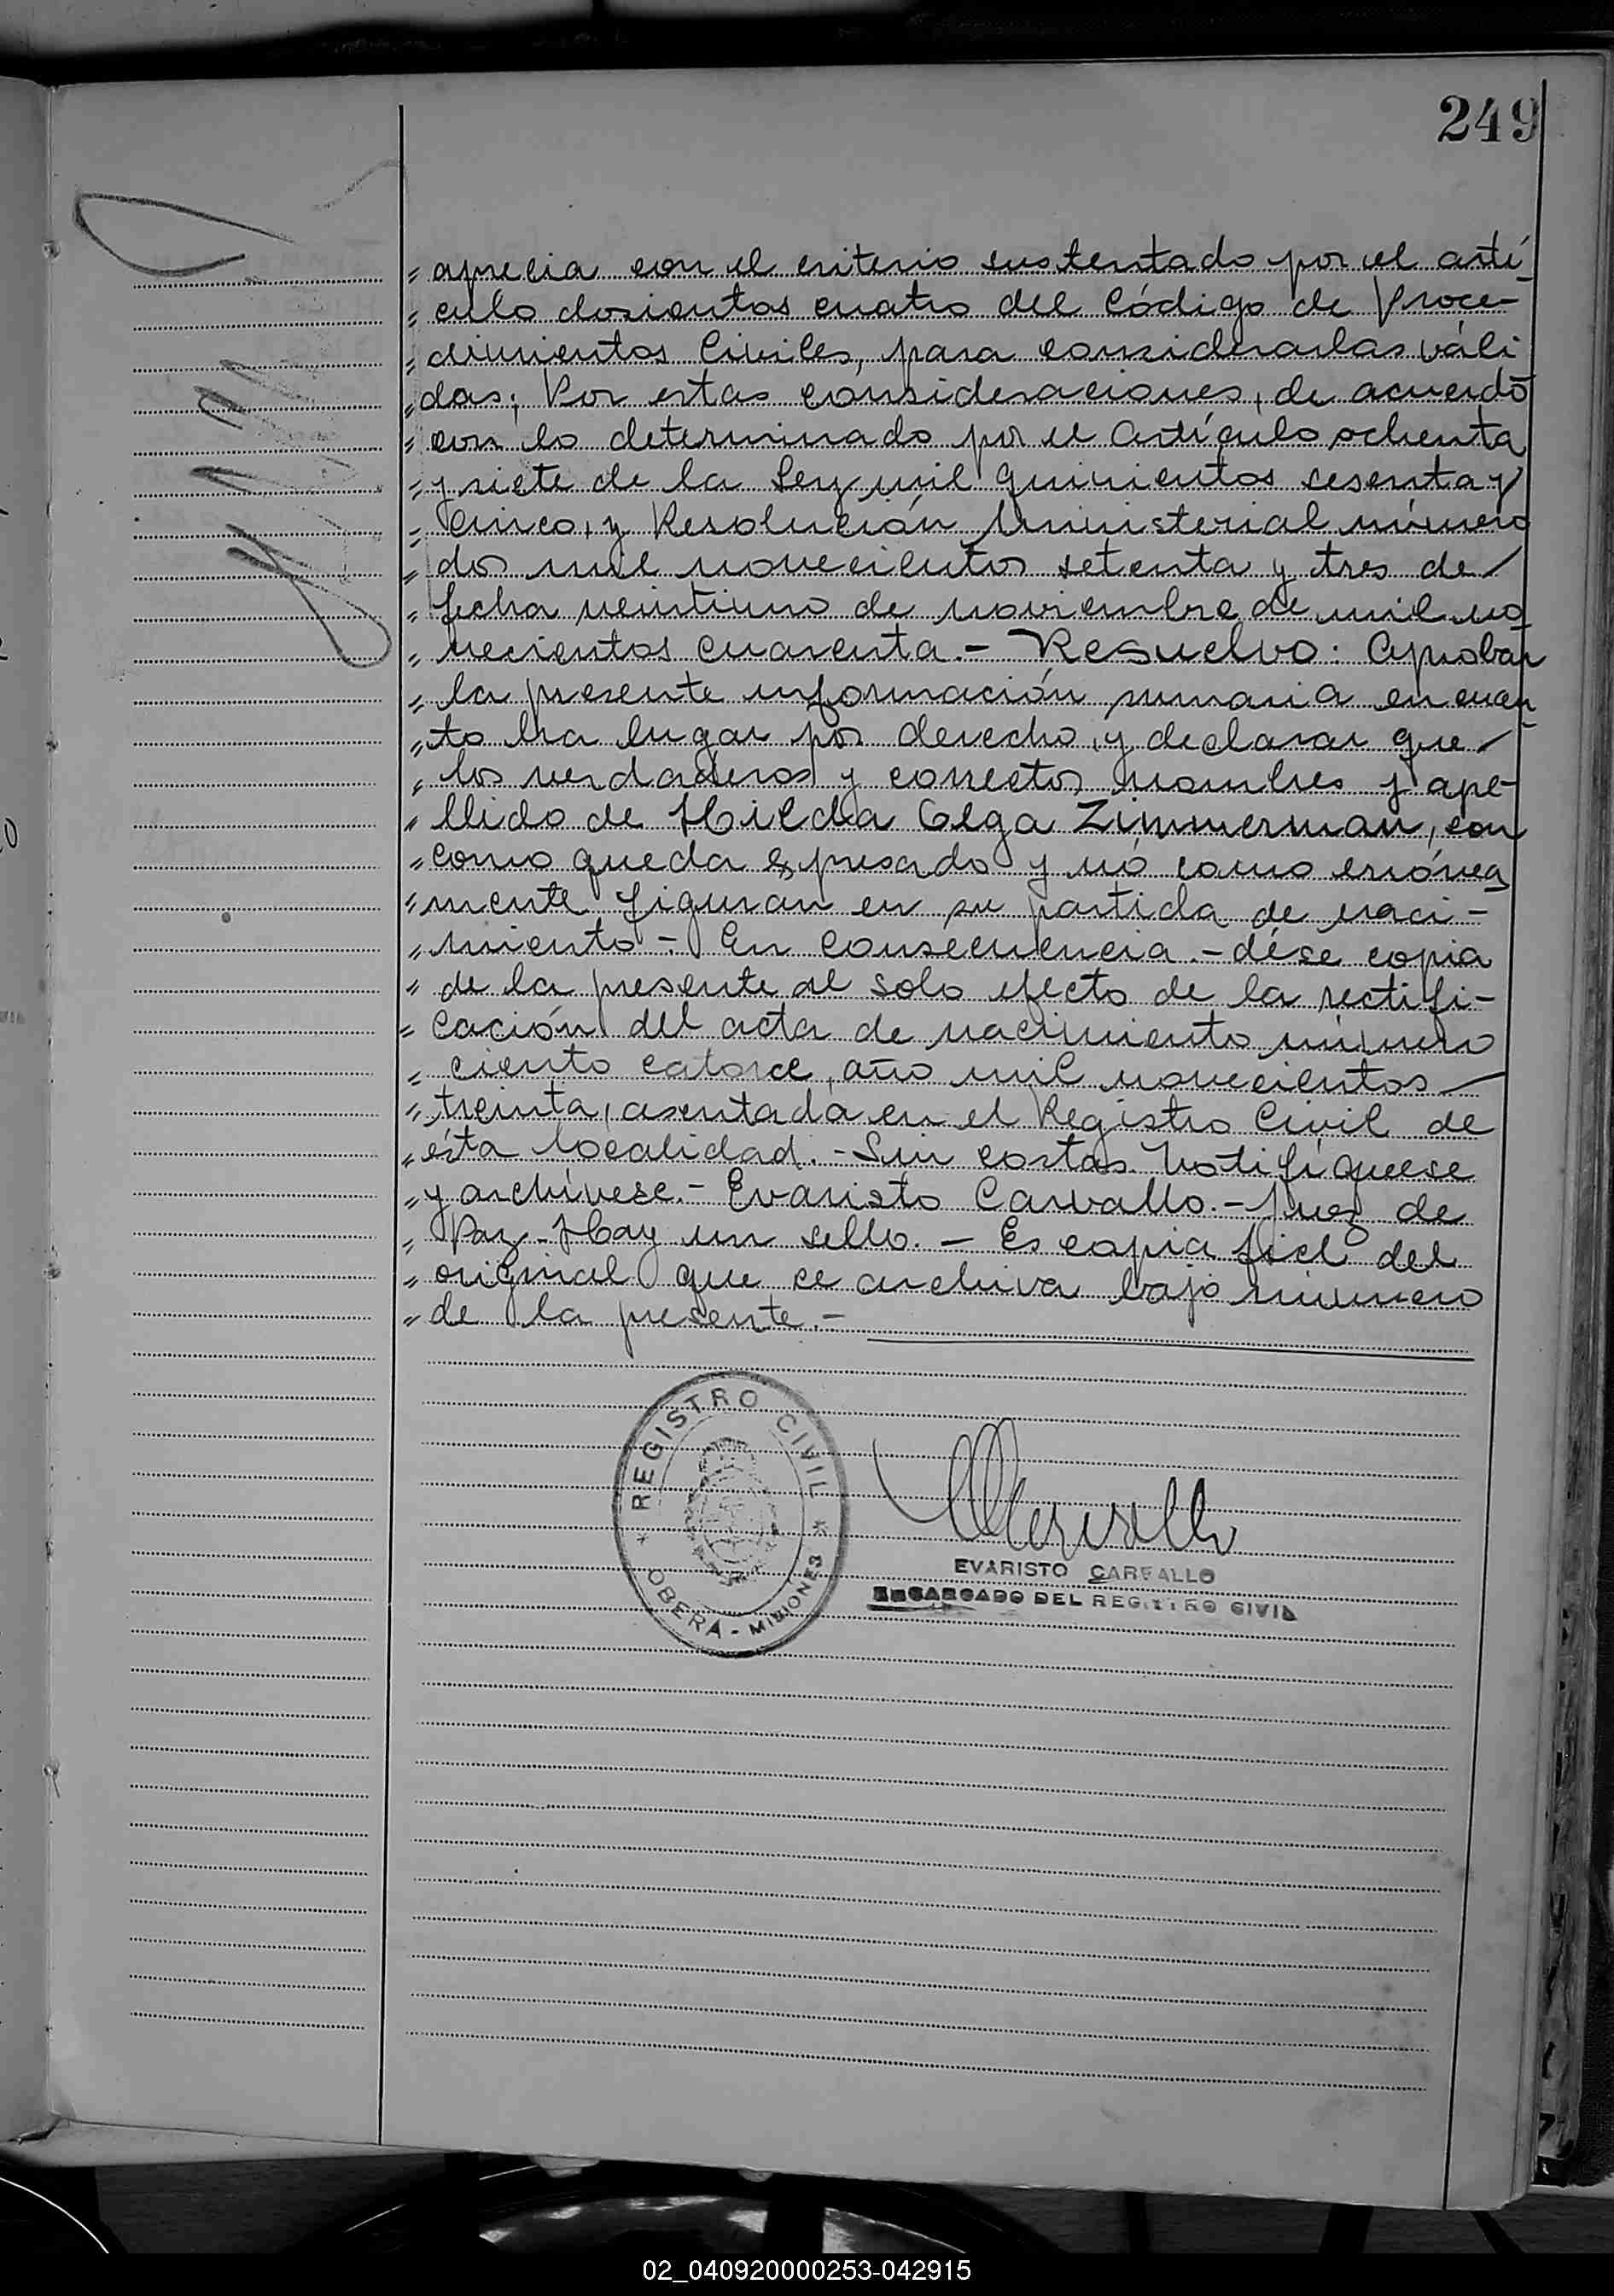 249
" aprecia con el criterio sustentado por el artí-
" culo dosientos cuatro del Código de Proce-
" dimientos Civiles, para considerarlas váli
" das; Por estas consideraciones, de acuerdo
" con lo determinado por el Artículo ochenta
" y siete de la Ley mil quinientos sesenta y
" cinco, y Resolución Ministerial número
" dos mil novecientos setenta y tres de
" fecha veintiuno de noviembre de mil no
" vecientos cuarenta.- Resuelvo: Aprobar
" la presente información sumaria en cuan-
" to ha lugar por derecho, y declarar que
" los verdaderos y correctos nombres y ape-
" llido de Hilda Olga Zimmerman, son
" como queda expresado y nó como errónea
" mente figuran en su partida de naci-
" miento - En consecuencia.- dése copia
" de la presente al solo efecto de la rectifi-
" cación del acta de nacimiento número
" ciento catorce, año mil novecientos
" treinta, asentada en el Registro Civil de
" ésta localidad.- Sin costas. Notifíquese
" y archívese.- Evaristo Carvallo.- Juez de
" Paz - Hay un sello.- Es copia fiel del
" original que se archiva bajo número
" de la presente.-
REGISTRO CIVIL
* OBERA - MISIONES *
Carvallo
EVARISTO CARVALLO
ENCARGADO DEL REGISTRO CIVIL
02_040920000253-042915